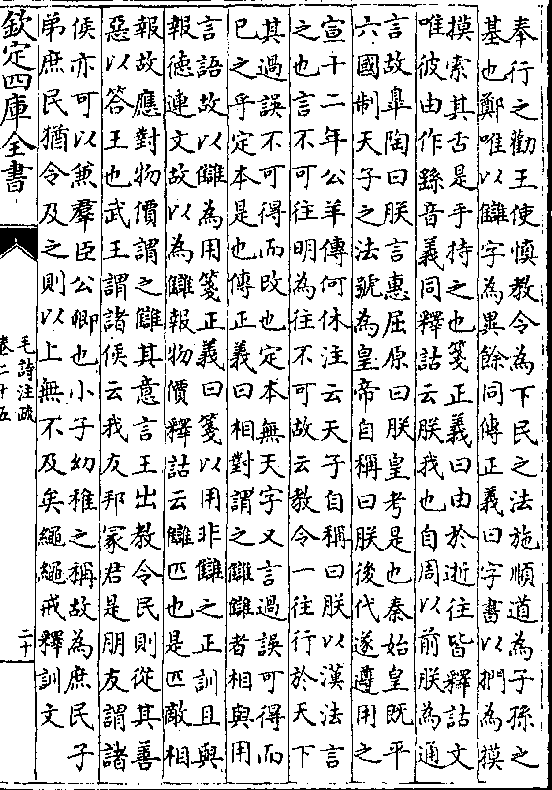 奉行之勸王使慎教令為下民之法施順道為子孫之
基也鄭唯以讎字為異餘同傳正義曰字書以捫為摸
摸索其舌是手持之也箋正義曰由於逝往皆釋詁文
唯彼由作繇音義同釋詁云朕我也自周以前朕為通
言故臯陶曰朕言惠屈原曰朕皇考是也秦始皇既平
六國制天子之法號為皇帝自稱曰朕後代遂遵用之
宣十二年公羊傳何休注云天子自稱曰朕以漢法言
之也言不可往明為往不可故云教令一往行於天下
其過誤不可得而改也定本無天字又言過誤可得而
已之乎定本是也傳正義曰相對謂之讎讎者相與用
言語故以讎為用箋正義曰箋以用非讎之正訓且與
報德連文故以為讎報物價釋詁云讎匹也是匹敵相
報故應對物價謂之讎其意言王出教令民則從其善
惡以答王也武王謂諸侯云我友邦冢君是朋友謂諸
侯亦可以兼羣臣公卿也小子幼稚之稱故為庶民子
弟庶民猶令及之則以上無不及矣繩繩戒釋訓文
欽定四庫全書
毛詩注疏
卷二十五
二十